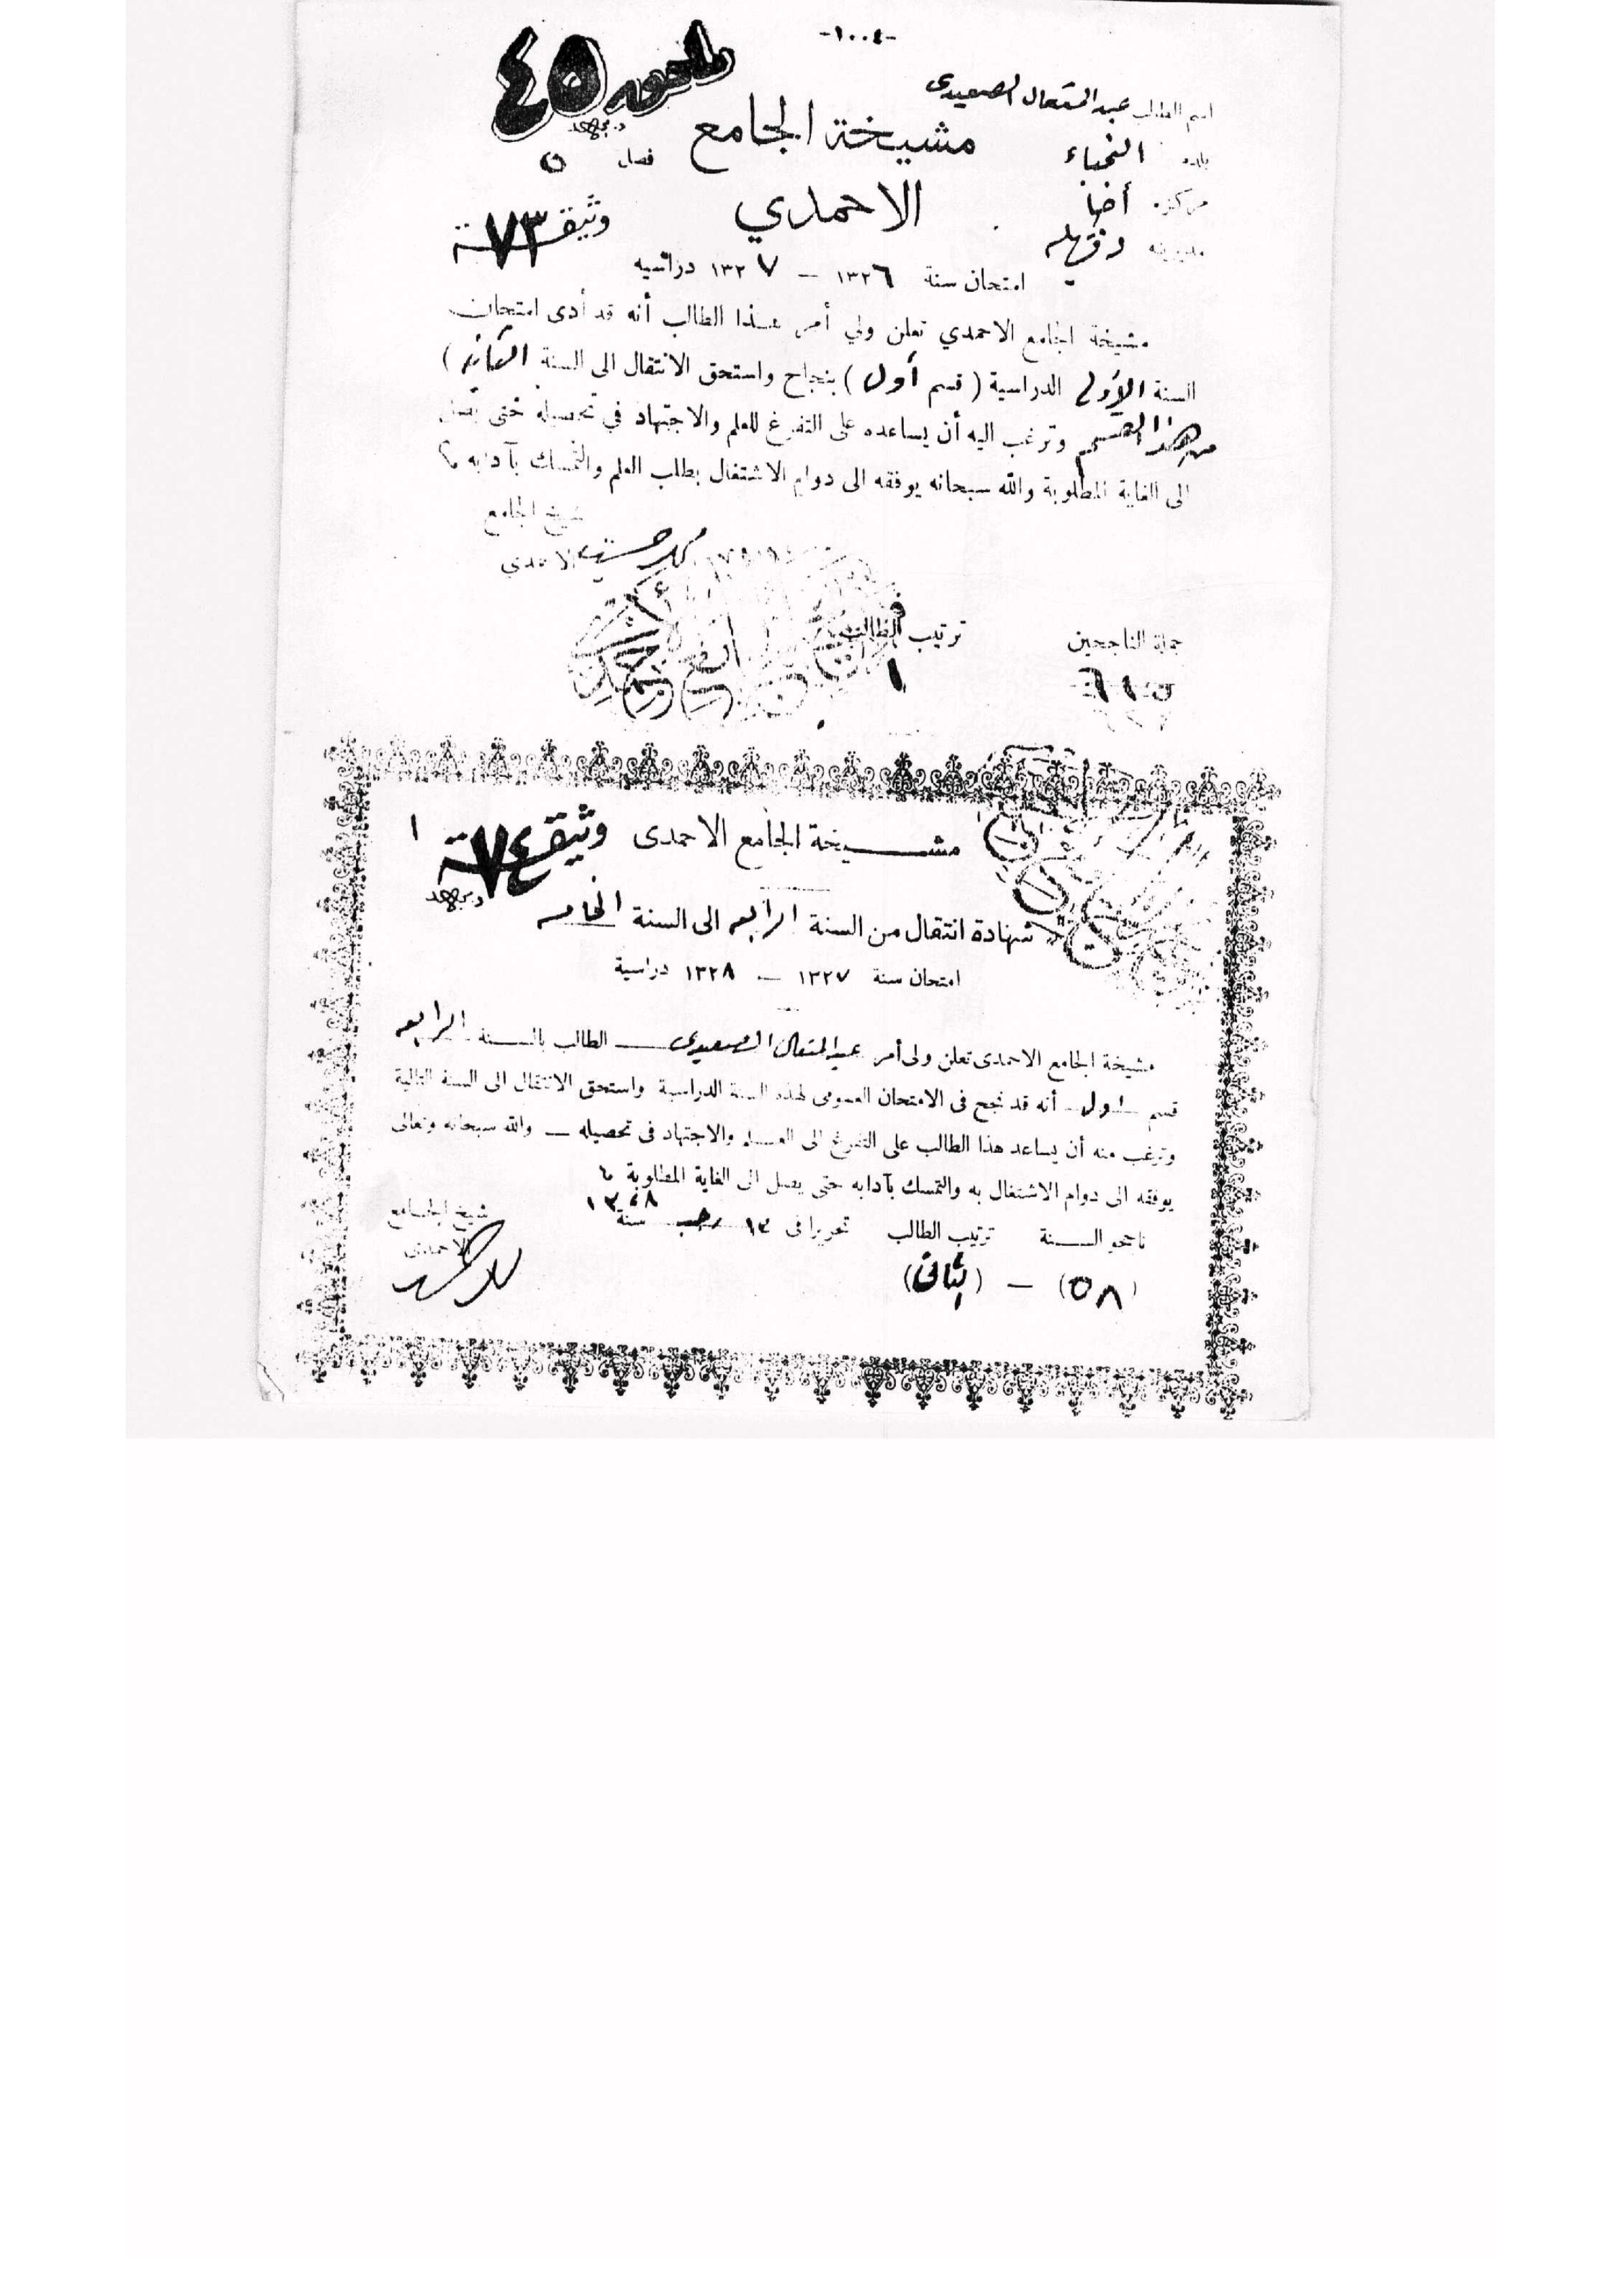 -١٠٠٤-
ملحق ٤٥
اسم الطالب عبد المتعال الصعيدى
بلده النجباء
مركز أجا
مديرية دقهليه
مشيخة الجامع
الاحمدي
فصل ٥
وثيقة ٧٣
امتحان سنة ١٣٢٦ — ١٣٢٧ دراسيه
مشيخة الجامع الاحمدي تعلن ولي أمر هذا الطالب أنه قد أدى امتحان
السنة الأولى الدراسية ( قسم أول ) بنجاح واستحق الانتقال الى السنة الثانية )
من هذا القسم وترغب اليه أن يساعده على التفرغ للعلم والاجتهاد في تحصيله حتى يصل
الى الغاية المطلوبة والله سبحانه يوفقه الى دوام الاشتغال بطلب العلم والتمسك بآدابه
شيخ الجامع
الاحمدي
جملة الناجحين
ترتيب الطالب
١
مشيخة الجامع الاحمدى
وثيقة ٧٤
١
شهادة انتقال من السنة الرابعه الى السنة الخامسه
امتحان سنة ١٣٢٧ — ١٣٢٨ دراسية
مشيخة الجامع الاحمدى تعلن ولى أمر عبد المتعال الصعيدى الطالب بالسنة الرابعه
قسم أول أنه قد نجح فى الامتحان العمومى لهذه السنة الدراسية واستحق الانتقال الى السنة التالية
وترغب منه أن يساعد هذا الطالب على التفرغ الى العلم والاجتهاد فى تحصيله — والله سبحانه وتعالى
يوفقه الى دوام الاشتغال به والتمسك بآدابه حتى يصل الى الغاية المطلوبة
ناجحو السنة ترتيب الطالب تحريرا فى ١٣ رجب سنة ١٣٢٨
شيخ الجامع
الاحمدى
(٥٨) — (الثانى)